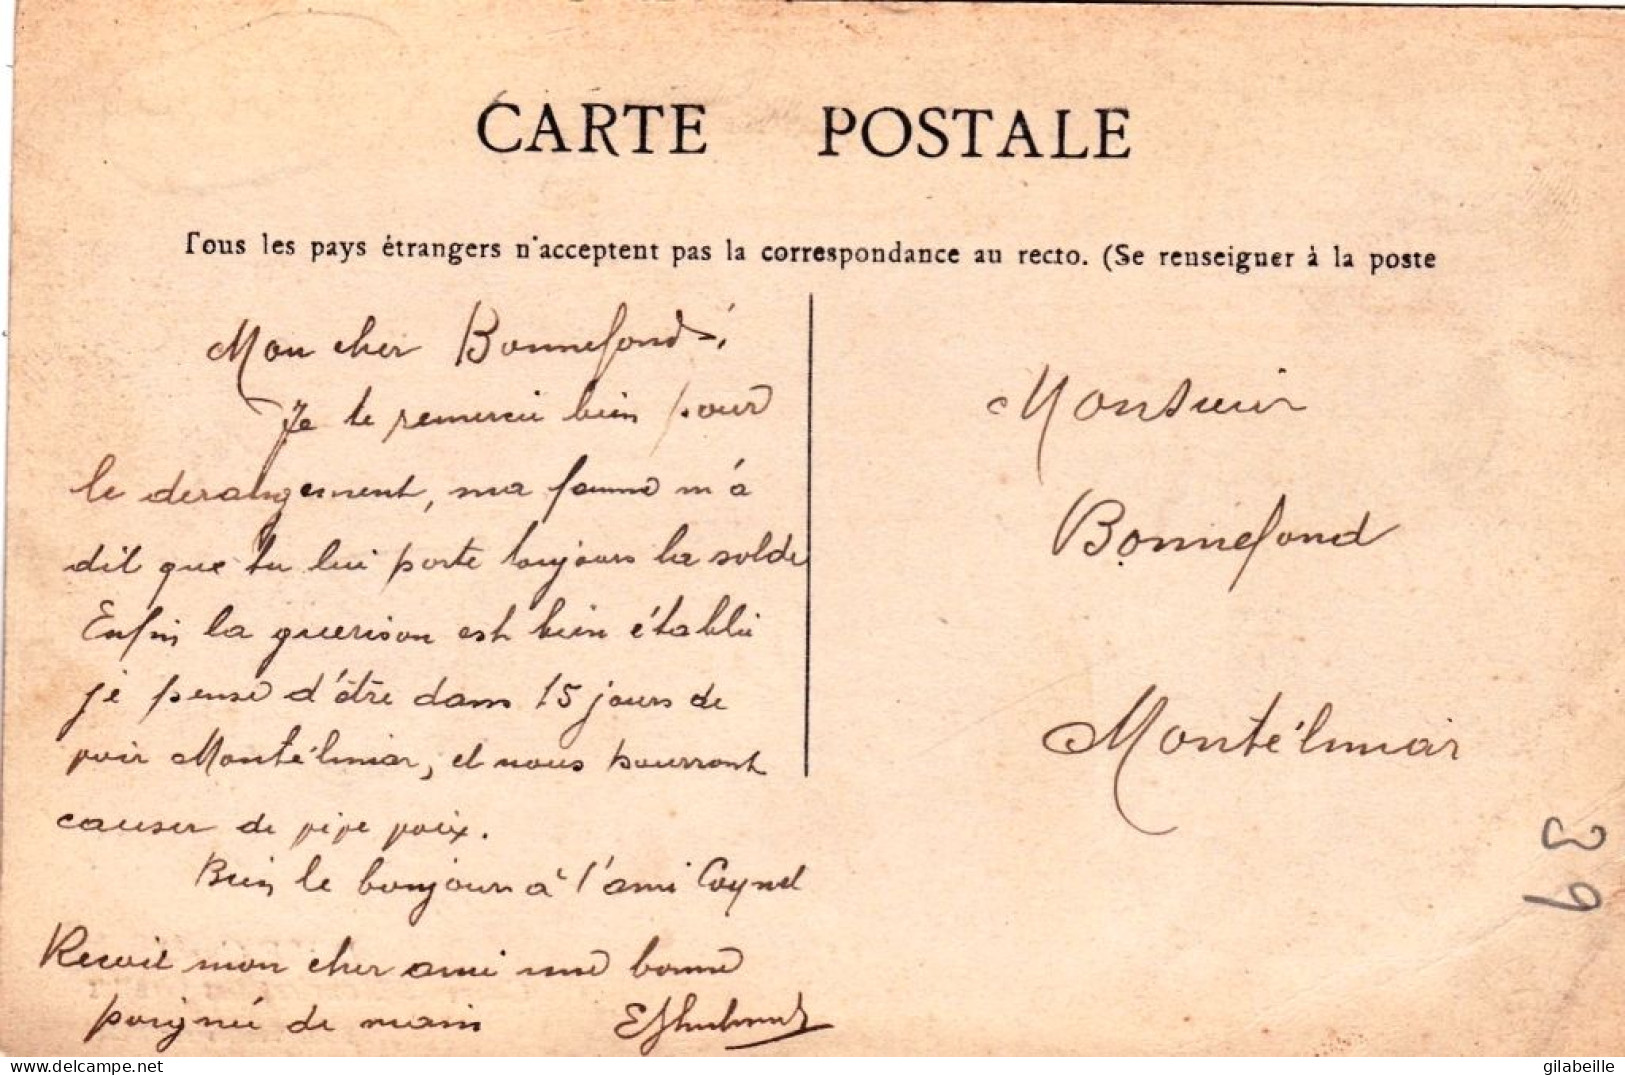 CARTE POSTALE
Tous les pays étrangers n'acceptent pas la correspondance au recto. (Se renseigner à la poste
Mon cher Bonnefond
Je te remercie bien pour
le derangement, ma femme m'a
dit que tu lui porte toujours la solde
Enfin la guerison est bien établie
je pense d'être dans 15 jours de
voir Montélimar, et nous pourront
causer de pipe poix.
Bien le bonjour à l'ami Coynel
Recoit mon cher ami une bonne
poignée de main
Monsieur
Bonnefond
Montélimar
39
gilabeille